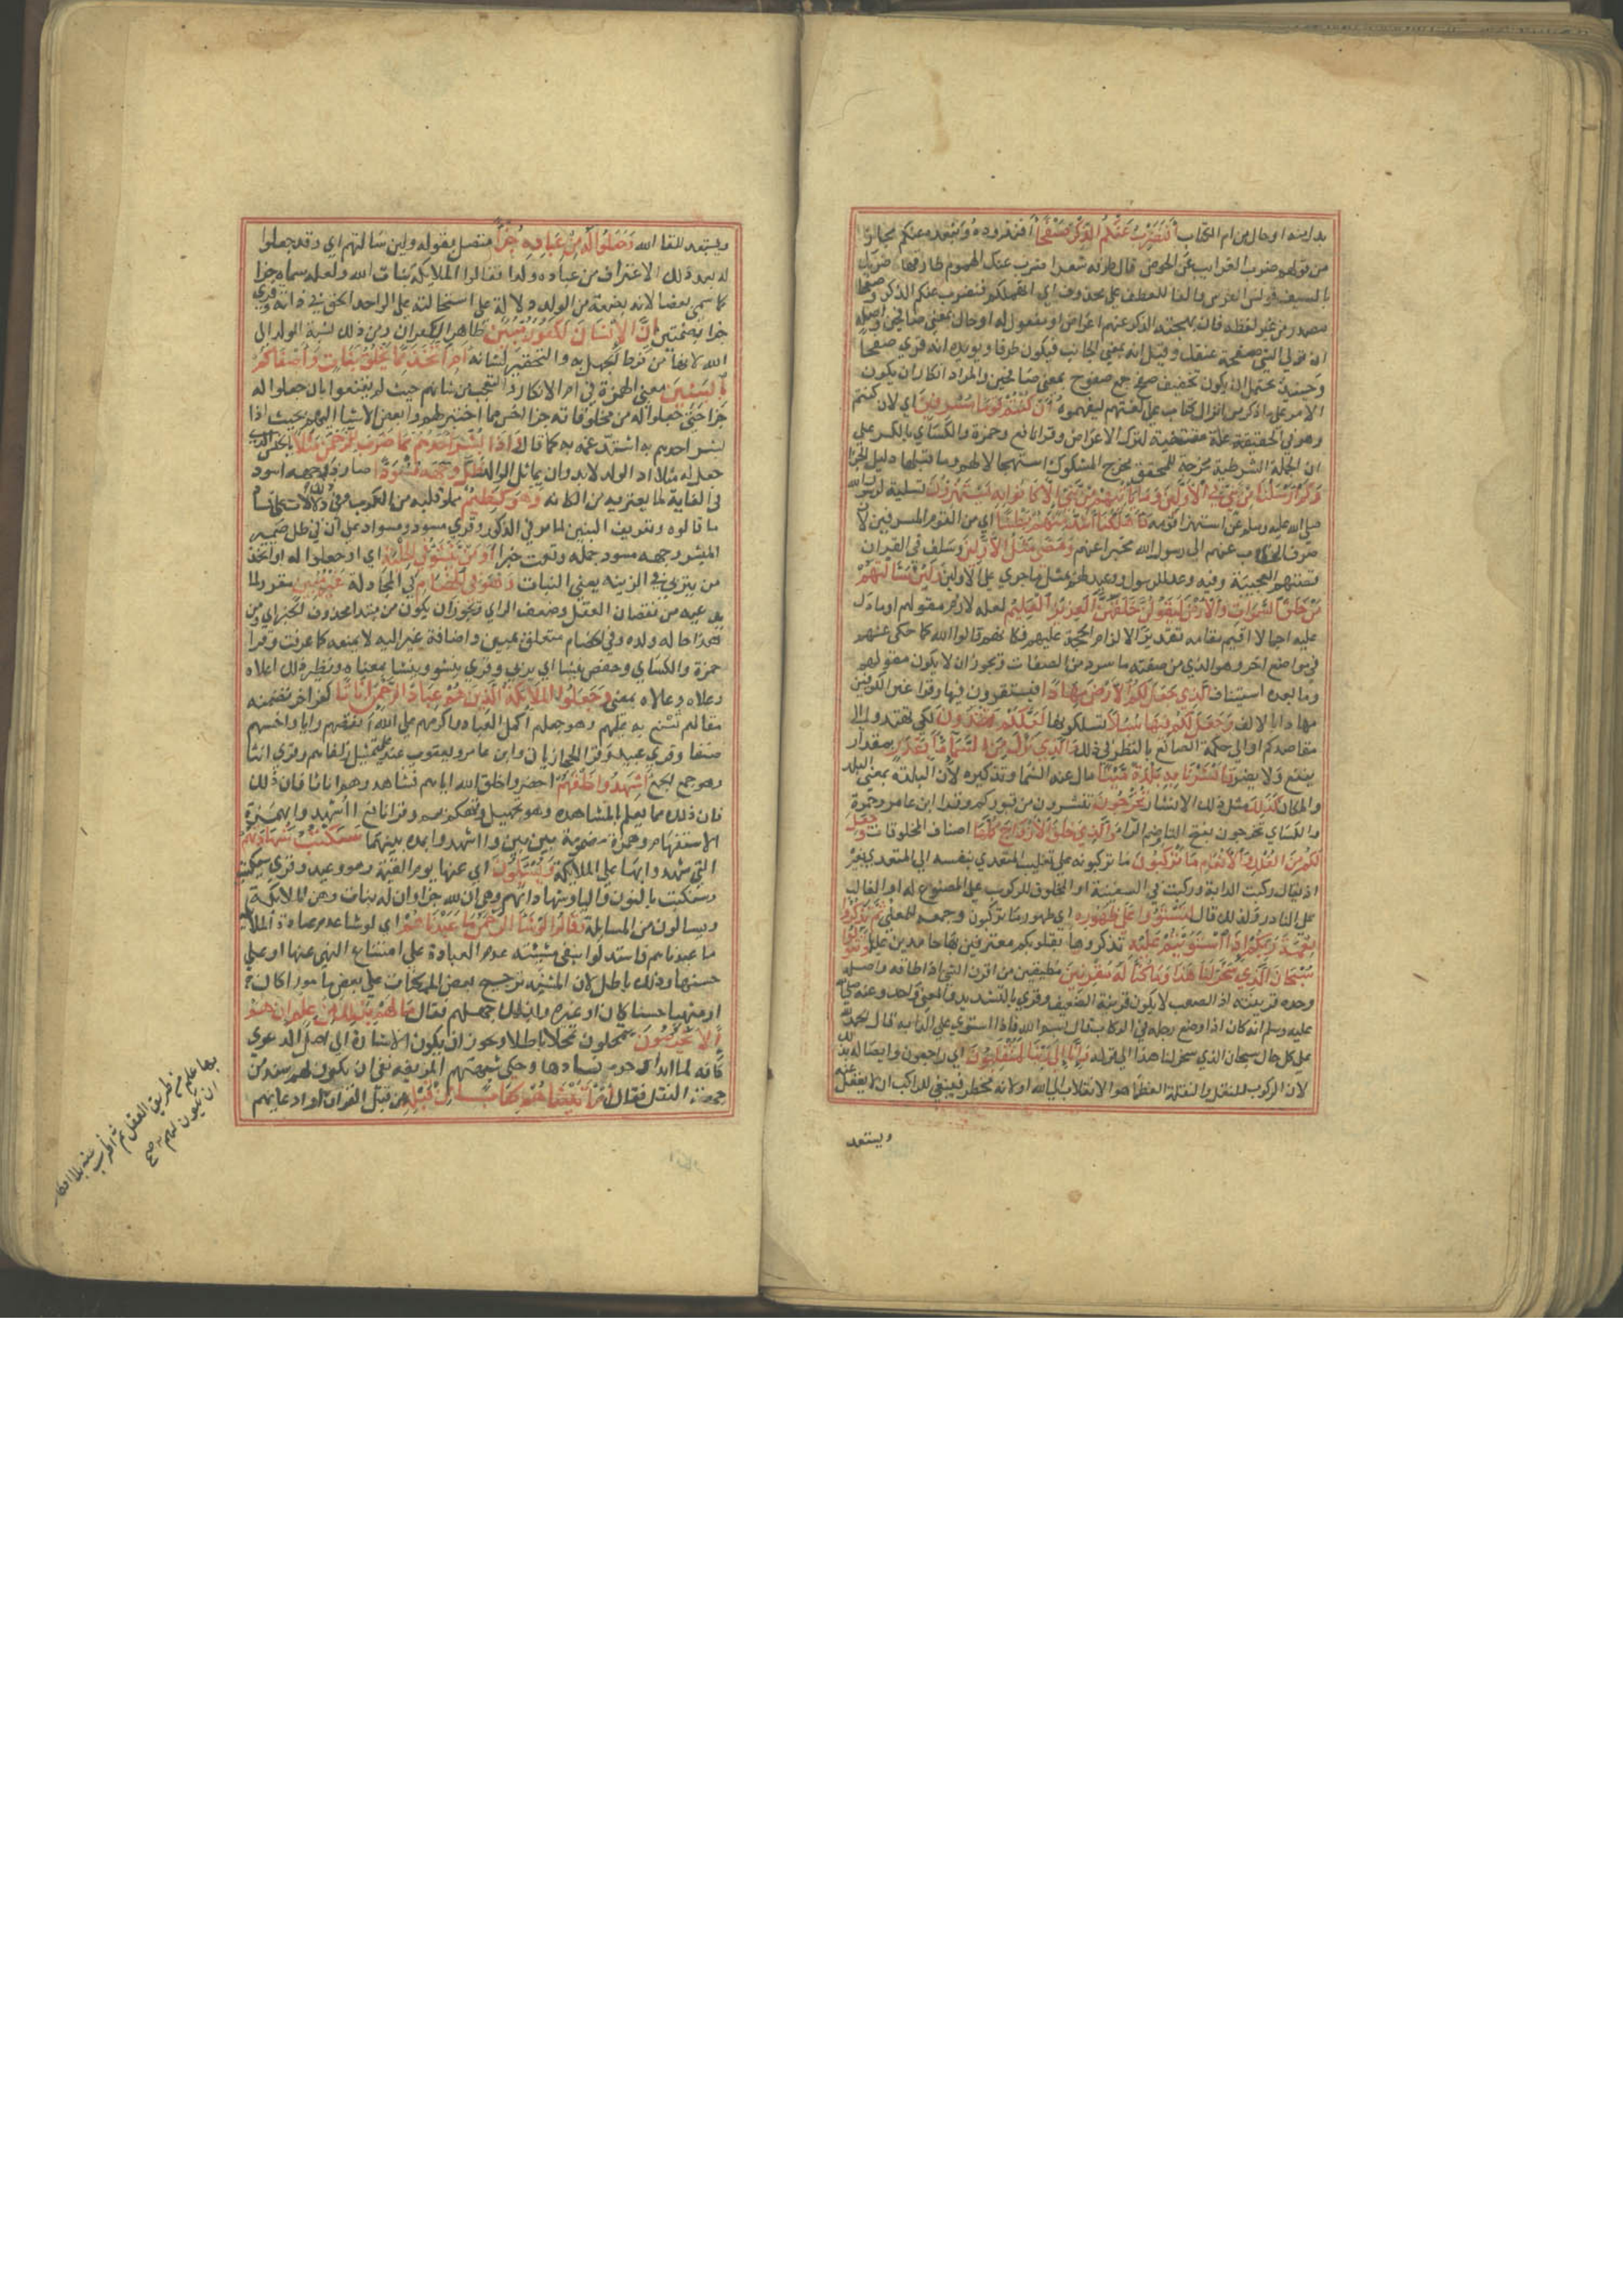 بدل منه او حال من ام الكتاب أَفَنَضْرِبُ عَنْكُمُ الذِّكْرَ صَفْحًا أفنذوده ونبعده عنكم مجاز
من قولهم ضرب الغرايب عن الحوض قال طرفه شعر اضرب عنك الهموم طارقها ضربك
بالسيف قونس الفرس والفا للعطف على محذوف اي انهملكم فنضرب عنكم الذكر وصفحا
مصدر من غير لفظه فان تنحيته الذكر عنهم اعراض او مفعول له او حال بمعنى صافحين واصله
ان تولي الشي صفحة عنقك وقيل انه بمعنى الجانب فيكون ظرفا ويويده انه قري صفحا
وحينيذ يحتمل ان يكون تخفيف صفح جمع صفوح بمعنى صافحين والمراد انكار ان يكون
الامر على ما ذكر من انزال كتاب على لغتهم ليفهموه أَنْ كُنْتُمْ قَوْمًا مُسْرِفِينَ اي لان كنتم
وهو في الحقيقة علة مقتضية لترك الاعراض وقرا نافع وحمزة والكسائي بالكسر على
ان الجملة الشرطية مخرجة للمحقق مخرج المشكوك استجهالا لهم وما قبلها دليل الجزا
وَكَمْ أَرْسَلْنَا مِنْ نَبِيٍّ فِي الْأَوَّلِينَ وَمَا يَأْتِيهِمْ مِنْ نَبِيٍّ إِلَّا كَانُوا بِهِ يَسْتَهْزِؤُنَ تسلية لرسول الله
صلى الله عليه وسلم عن استهزا قومه فَأَهْلَكْنَا أَشَدَّ مِنْهُمْ بَطْشًا اي من القوم المسرفين لانه
صرف الخطاب عنهم الى رسول الله مخبرا عنهم وَمَضَى مَثَلُ الْأَوَّلِينَ وسلف في القران
قصتهم العجيبة وفيه وعد للرسول ووعيد لهم بمثل ما جري على الاولين وَلَئِنْ سَأَلْتَهُمْ
مَنْ خَلَقَ السَّمَوَاتِ وَالْأَرْضَ لَيَقُولُنَّ خَلَقَهُنَّ الْعَزِيزُ الْعَلِيمُ لعله لازم مقولهم او ما دل
عليه اجمالا اقيم مقامه تقديرا لالزام الحجة عليهم فكانهم قالوا الله كما حكى عنهم
في مواضع اخر وهو الذي من صفته ما سرد من الصفات ويجوز ان لا يكون مقولهم
وما بعده استيناف الَّذِي جَعَلَ لَكُمُ الْأَرْضَ مِهَادًا فيستقرون فيها وقرا غير الكوفيين
مهادا بالالف وَجَعَلَ لَكُمْ فِيهَا سُبُلًا تسلكونها لَعَلَّكُمْ تَهْتَدُونَ لكي تهتدوا الى
مقاصدكم او الى حكمة الصانع بالنظر في ذلك وَالَّذِي نَزَّلَ مِنَ السَّمَاءِ مَاءً بِقَدَرٍ بمقدار
ينفع ولا يضر فَأَنْشَرْنَا بِهِ بَلْدَةً مَيْتًا مال عنه النما وتذكيره لان البلدة بمعنى البلد
والمكان كَذَلِكَ مثل ذلك الانشار تُخْرَجُونَ تنشرون من قبوركم وقرا ابن عامر وحمزة
والكسائي تخرجون بفتح التا وضم الرا وَالَّذِي خَلَقَ الْأَزْوَاجَ كُلَّهَا اصناف المخلوقات وَجَعَلَ
لَكُمْ مِنَ الْفُلْكِ وَالْأَنْعَامِ مَا تَرْكَبُونَ ما تركبونه على تغليب المتعدي بنفسه الى المتعدي بغيره
اذ يقال ركبت الدابة وركبت في السفينة او المخلوق للركوب على المصنوع له او الغالب
على النادر ولذلك قال لِتَسْتَوُوا عَلَى ظُهُورِهِ اي ظهور ما تركبون وجمعه للمعنى ثُمَّ تَذْكُرُوا
نِعْمَةَ رَبِّكُمْ إِذَا اسْتَوَيْتُمْ عَلَيْهِ تذكروها بقلوبكم معترفين بها حامدين عليها وَتَقُولُوا
سُبْحَانَ الَّذِي سَخَّرَ لَنَا هَذَا وَمَا كُنَّا لَهُ مُقْرِنِينَ مطيقين من اقرن الشي اذا اطاقه واصله
وجده قرينته اذ الصعب لا يكون قرينة الضعيف وقري بالتشديد والمعنى واحد وعنه صلى
عليه وسلم انه كان اذا وضع رجله في الركاب قال بسم الله فاذا استوي على الدابة قال الحمد لله
على كل حال سبحان الذي سخر لنا هذا الى قوله وَإِنَّا إِلَى رَبِّنَا لَمُنْقَلِبُونَ اي راجعون واتصاله بذلك
لان الركوب للتنقل والنقلة العظمى هو الانقلاب الى الله او لانه مخطر فينبغي للراكب ان لا يغفل عنه
ويستعد
ويستعد للقا الله وَجَعَلُوا لَهُ مِنْ عِبَادِهِ جُزْءًا متصل بقوله ولين سالتهم اي وقد جعلوا
له بعد ذلك الاعتراف من عباده ولدا فقالوا الملايكة بنات الله ولعله سماه جزا
كما سمي بعضا لانه بضعة من الوالد دلالة على استحالته على الواحد الحق في ذاته وقري
جزا بضمتين إِنَّ الْإِنْسَانَ لَكَفُورٌ مُبِينٌ ظاهر الكفران ومن ذلك نسبة الولد الى
الله لانها من فرط الجهل به والتحقير لشانه أَمِ اتَّخَذَ مِمَّا يَخْلُقُ بَنَاتٍ وَأَصْفَاكُمْ
بِالْبَنِينَ معنى الهمزة في ام الانكار والتعجب من شانهم حيث لم يقنعوا بان جعلوا له
جزا حتى جعلوا له من مخلوقاته جزا اخس مما اختير لهم وابغض الاشيا اليهم بحيث اذا
بشر احدهم به اشتد غمه به كما قال وَإِذَا بُشِّرَ أَحَدُهُمْ بِمَا ضَرَبَ لِلرَّحْمَنِ مَثَلًا بالجنس الذي
جعل له مثلا اذ الولد لابد وان يماثل الوالد ظَلَّ وَجْهُهُ مُسْوَدًّا صار وجهه اسود
في الغاية لما يعتريه من الكابه وَهُوَ كَظِيمٌ مملو قلبه من الكرب وفي ذلك دلالات على فساد
ما قالوه وتعريف البنين لما مر في الذكور وقري مسود ومسواد على ان في ظل ضمير
المبشر ووجهه مسود جملة وقعت خبرا أَوَمَنْ يُنَشَّأُ فِي الْحِلْيَةِ اي او جعلوا له او اتخذ
من يتربى في الزينه يعني البنات وَهُوَ فِي الْخِصَامِ في المجادلة غَيْرُ مُبِينٍ مقرر لما
يدعيه من نقصان العقل وضعف الراي ويجوز ان يكون من مبتدا محذوف الخبر اي ومن
هذا حاله ولده وفي الخصام متعلق بمبين واضافة غير اليه لا يمنعه كما عرفت وقرا
حمزة والكسائي وحفص ينشا اي يربي وقري ينشو وينشا بمعناه ونظير ذلك اعلاه
وعلاه وعالاه بمعنى وَجَعَلُوا الْمَلَائِكَةَ الَّذِينَ هُمْ عِبَادُ الرَّحْمَنِ إِنَاثًا كفر اخر تضمنه
مقالهم شنع به عليهم وهو جعلهم اكمل العباد واكرمهم على الله انقصهم رايا واخسهم
صنفا وقري عبيد وقرا الحجازيان وابن عامر ويعقوب عند على تمثيل زلفاهم وقري انثا
وهو جمع الجمع أَشَهِدُوا خَلْقَهُمْ احضروا خلق الله اياهم فشاهدوهم اناثا فان ذلك
فان ذلك مما يعلم بالمشاهده وهو تجهيل وتهكم بهم وقرا نافع ااشهدوا بهمزة
الاستفهام وهمزة مضمومة بين بين وااشهدوا بمدة بينهما سَتُكْتَبُ شَهَادَتُهُمْ
التي شهدوا بها على الملايكة وَيُسْئَلُونَ اي عنها يوم القيمة وهو وعيد وقري سيكتب
وسنكتب بالنون واليا وشهاداتهم وهي ان لله جزا وان له بنات وهن الملايكة
ويسالون من المسايلة وَقَالُوا لَوْ شَاءَ الرَّحْمَنُ مَا عَبَدْنَاهُمْ اي لو شا عدم عبادة الملايكة
ما عبدناهم فاستدلوا بنفي مشيته عدم العبادة على امتناع النهي عنها او على
حسنها وذلك باطل لان المشية ترجيح بعض الممكنات على بعض مامورا كان
او منهيا حسنا كان او غيره ولذلك جهلهم فقال مَا لَهُمْ بِذَلِكَ مِنْ عِلْمٍ إِنْ هُمْ
إِلَّا يَخْرُصُونَ يتمحلون تمحلا باطلا ويجوز ان يكون الاشارة الى اصل الدعوي
كانه لما ابدا وجوه فسادها وحكى شبهتهم المزيفه نفي ان يكون لهم سند من
جهة النقل فقال أَمْ آتَيْنَاهُمْ كِتَابًا مِنْ قَبْلِهِ من قبل القران او ادعايهم
بها علم من طريق العقل ثم اضرب عنه بلا انكار
ان يكون لهم صح